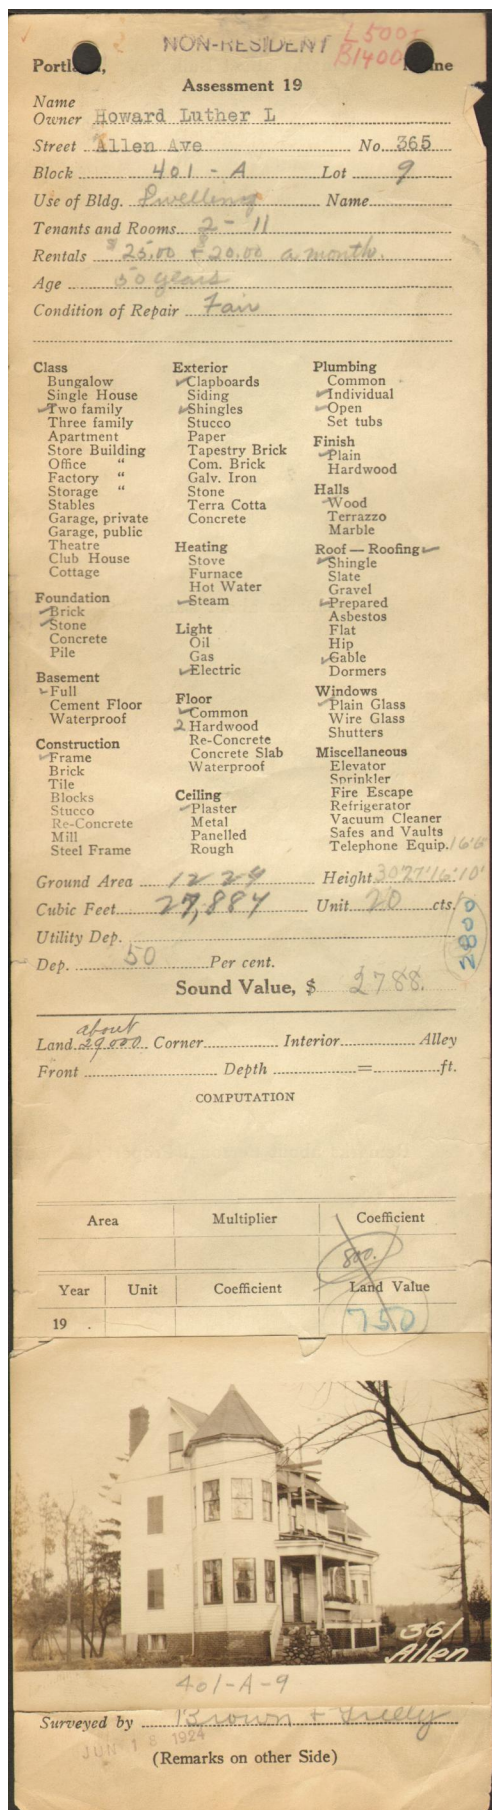 NON-RESIDENT
L 500
B1400
Portland, Maine
Assessment 19
Name
Owner Howard Luther L
Street Allen Ave No. 365
Block 401-A Lot 9
Use of Bldg. Dwelling Name
Tenants and Rooms 2-11
Rentals $25.00 + 20.00 a month.
Age 50 years
Condition of Repair Fair
Class
Bungalow
Single House
✓Two family
Three family
Apartment
Store Building
Office "
Factory "
Storage "
Stables
Garage, private
Garage, public
Theatre
Club House
Cottage
Foundation
✓Brick
✓Stone
Concrete
Pile
Basement
✓Full
Cement Floor
Waterproof
Construction
✓Frame
Brick
Tile
Blocks
Stucco
Re-Concrete
Mill
Steel Frame
Exterior
✓Clapboards
Siding
✓Shingles
Stucco
Paper
Tapestry Brick
Com. Brick
Galv. Iron
Stone
Terra Cotta
Concrete
Heating
Stove
Furnace
Hot Water
✓Steam
Light
Oil
Gas
✓Electric
Floor
✓Common
2 Hardwood
Re-Concrete
Concrete Slab
Waterproof
Ceiling
✓Plaster
Metal
Panelled
Rough
Plumbing
Common
✓Individual
✓Open
Set tubs
Finish
✓Plain
Hardwood
Halls
✓Wood
Terrazzo
Marble
Roof — Roofing ✓
✓Shingle
Slate
Gravel
✓Prepared
Asbestos
Flat
Hip
✓Gable
Dormers
Windows
✓Plain Glass
Wire Glass
Shutters
Miscellaneous
Elevator
Sprinkler
Fire Escape
Refrigerator
Vacuum Cleaner
Safes and Vaults
Telephone Equip.
Ground Area 1229 Height 30'27'16'10'
Cubic Feet 27,884 Unit 20 cts.
2800
Utility Dep.
Dep. 50 Per cent.
Sound Value, $ 2788.
about
Land 29,000 Corner Interior Alley
Front Depth = ft.
COMPUTATION
Area Multiplier Coefficient
800.
Year Unit Coefficient Land Value
19 750
361
Allen
401-A-9
Surveyed by Brown +
JUN 18 1924
(Remarks on other Side)